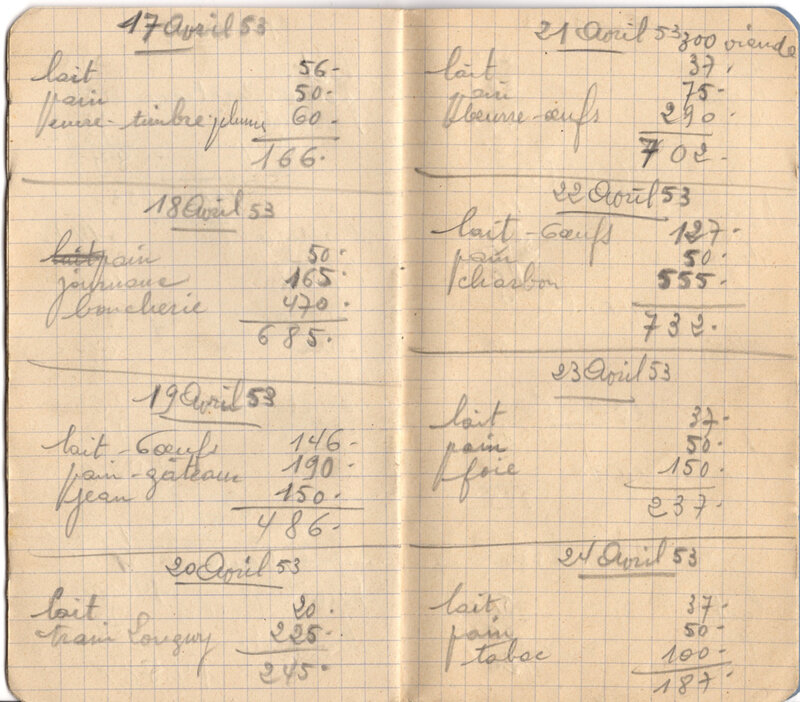 17 Avril 53
lait 56-
pain 50-
encre-timbre-plume 60-
166.
18 Avril 53
lait pain 50.
journaux 165.
boucherie 470.
685.
19 Avril 53
lait - 6 œufs 146-
pain - gâteaux 190.
jean 150.
486.
20 Avril 53
lait 20.
train Longwy 225.
245.
21 Avril 53 300 viande
lait 37.
pain 75-
beurre-œufs 290.
702.
22 Avril 53
lait - 6 œufs 127.
pain 50.
charbon 555.
732.
23 Avril 53
lait 37-
pain 50-
foie 150.
237.
24 Avril 53
lait 37-
pain 50-
tabac 100-
187.